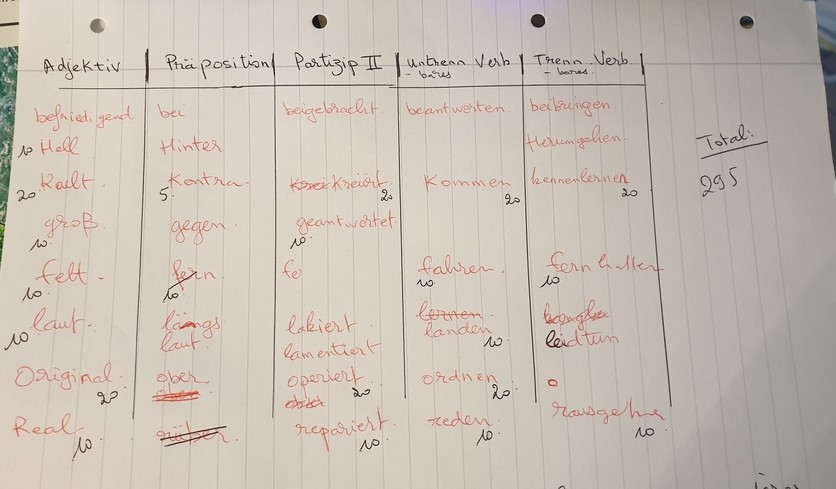 Adjektiv Präposition Partizip II Untrenn Verb Trenn. Verb
- bares - bares.
befriedigend bei beigebracht beantworten beibringen
10 Hell Hinter Herumgehen Total:
20 Kalt. 5 Kontra. Kreiert 20 Kommen 20 kennenlernen 20 295
10 groß gegen geantwortet 10
10 fett - fern 10 fe fahren. 10 fernhalten 10
10 laut. längs lakiert lernen
laut lamentiert landen 10 leidtun
Original 20 ober operiert 20 ordnen 20
Real 10 rüber repariert 10 reden 10 rausgehen 10